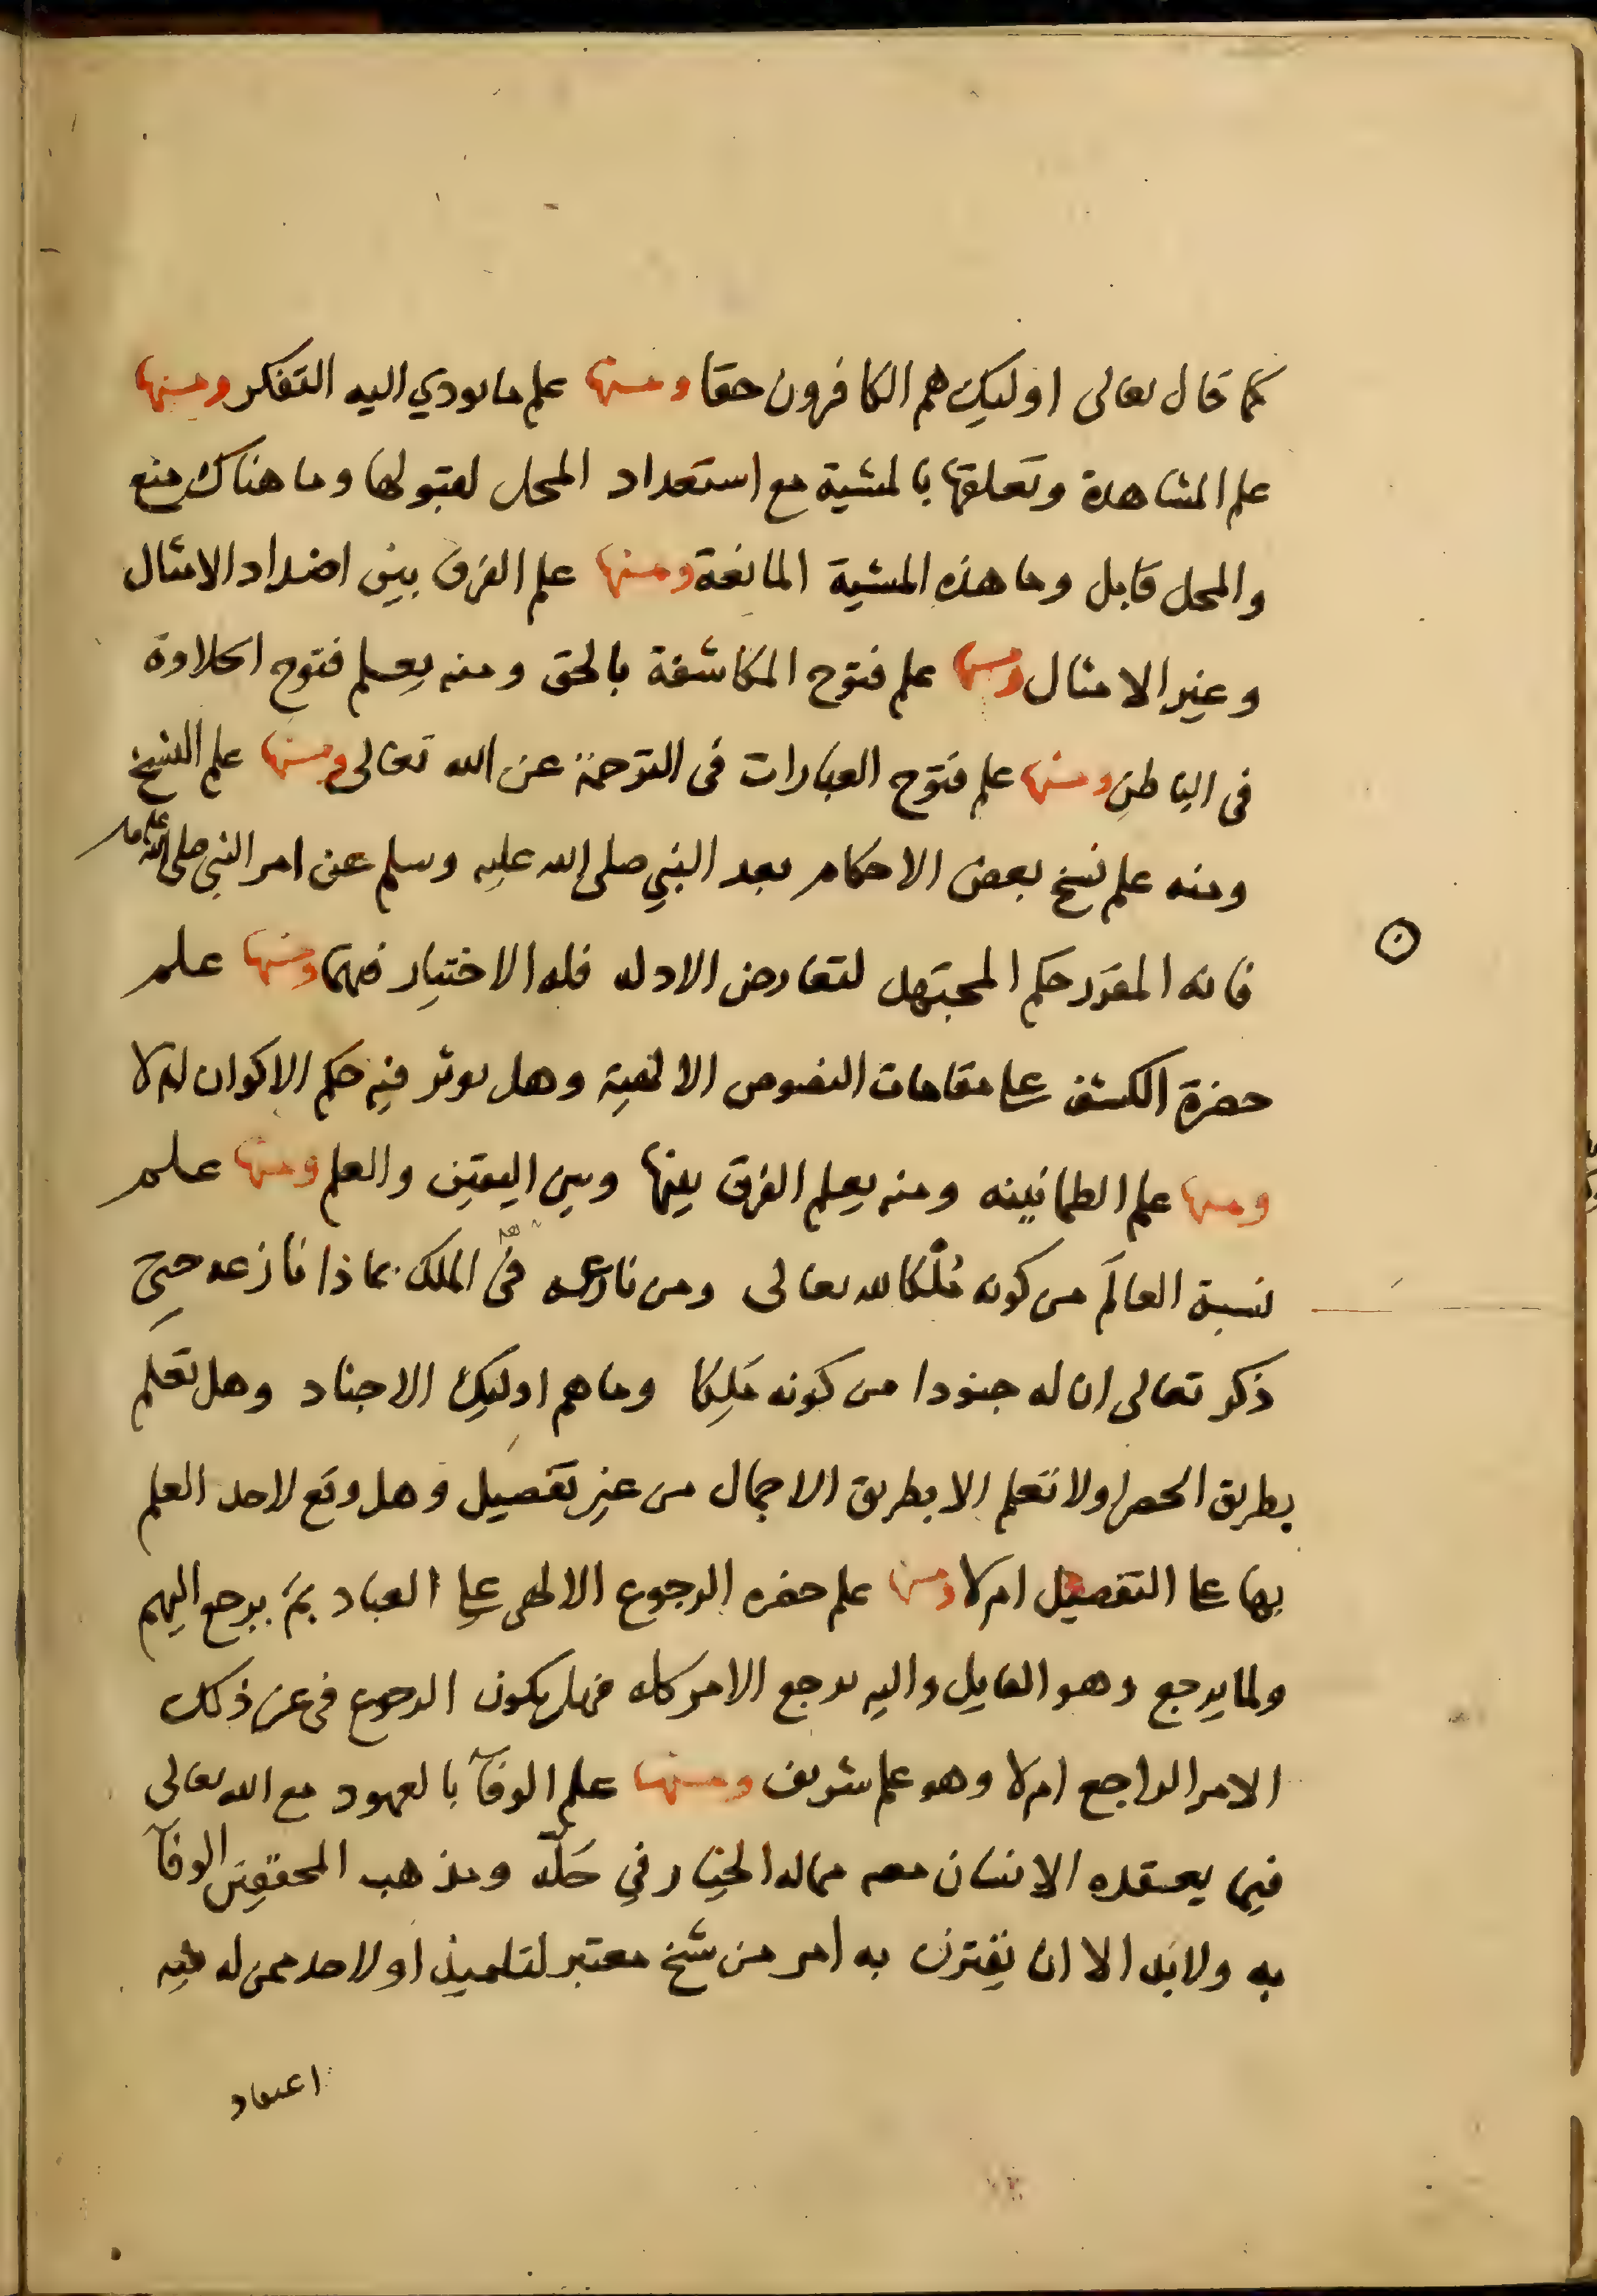 كما قال تعالى اوليك هم الكافرون حقا ومنها علم ما يودي اليه التفكر ومنها
علم المشاهدة وتعلقها بالمشية مع استعداد المحل لقبولها وما هناك منع
والمحل قابل وما هذه المشية المانعة ومنها علم الفرق بين اضداد الامثال
وغير الامثال ومنها علم فتوح المكاشفة بالحق ومنه يعلم فتوح الحلاوة
فى الباطن ومنها علم فتوح العبارات فى الترجمة عن الله تعالى ومنها علم النسخ
ومنه علم نسخ بعض الاحكام بعد النبي صلى الله عليه وسلم عن امر النبي صلى الله عليه وسلم
فانه المقرر حكم المجتهد لتعارض الادله فله الاختيار فيها ومنها علم
حضرة الكشف على مقامات النصوص الالهية وهل يوثر فيه حكم الاكوان ام لا
ومنها علم الطمانينه ومنه يعلم الفرق بينها وبين اليقين والعلم ومنها علم
نسبة العالَم من كونه مُلْكا لله تعالى ومن نازعه فى الملك بماذا نازعه حتى
ذكر تعالى ان له جنودا من كونه مَلِكا وما هم اوليك الاجناد وهل تعلم
بطريق الحصر اولا تعلم الا بطريق الاجمال من غير تفصيل وهل وقع لاحد العلم
بها على التفصيل ام لا ومنها علم حضره الرجوع الالهى على العباد بمَ يرجع اليهم
ولما يرجع وهو القايل واليه يرجع الامر كله فهل يكون الرجوع فى عين ذلك
الامر الراجع ام لا وهو علم شريف ومنها علم الوفآ بالعهود مع الله تعالى
فيما يعتقده الانسان معه مما له الخيار في حَلّه ومذهب المحققين الوفآ
به ولابد الا ان يقترن به امر من شيخ معتبر لتلميذ او لاحد ممن له فيه
اعتقاد